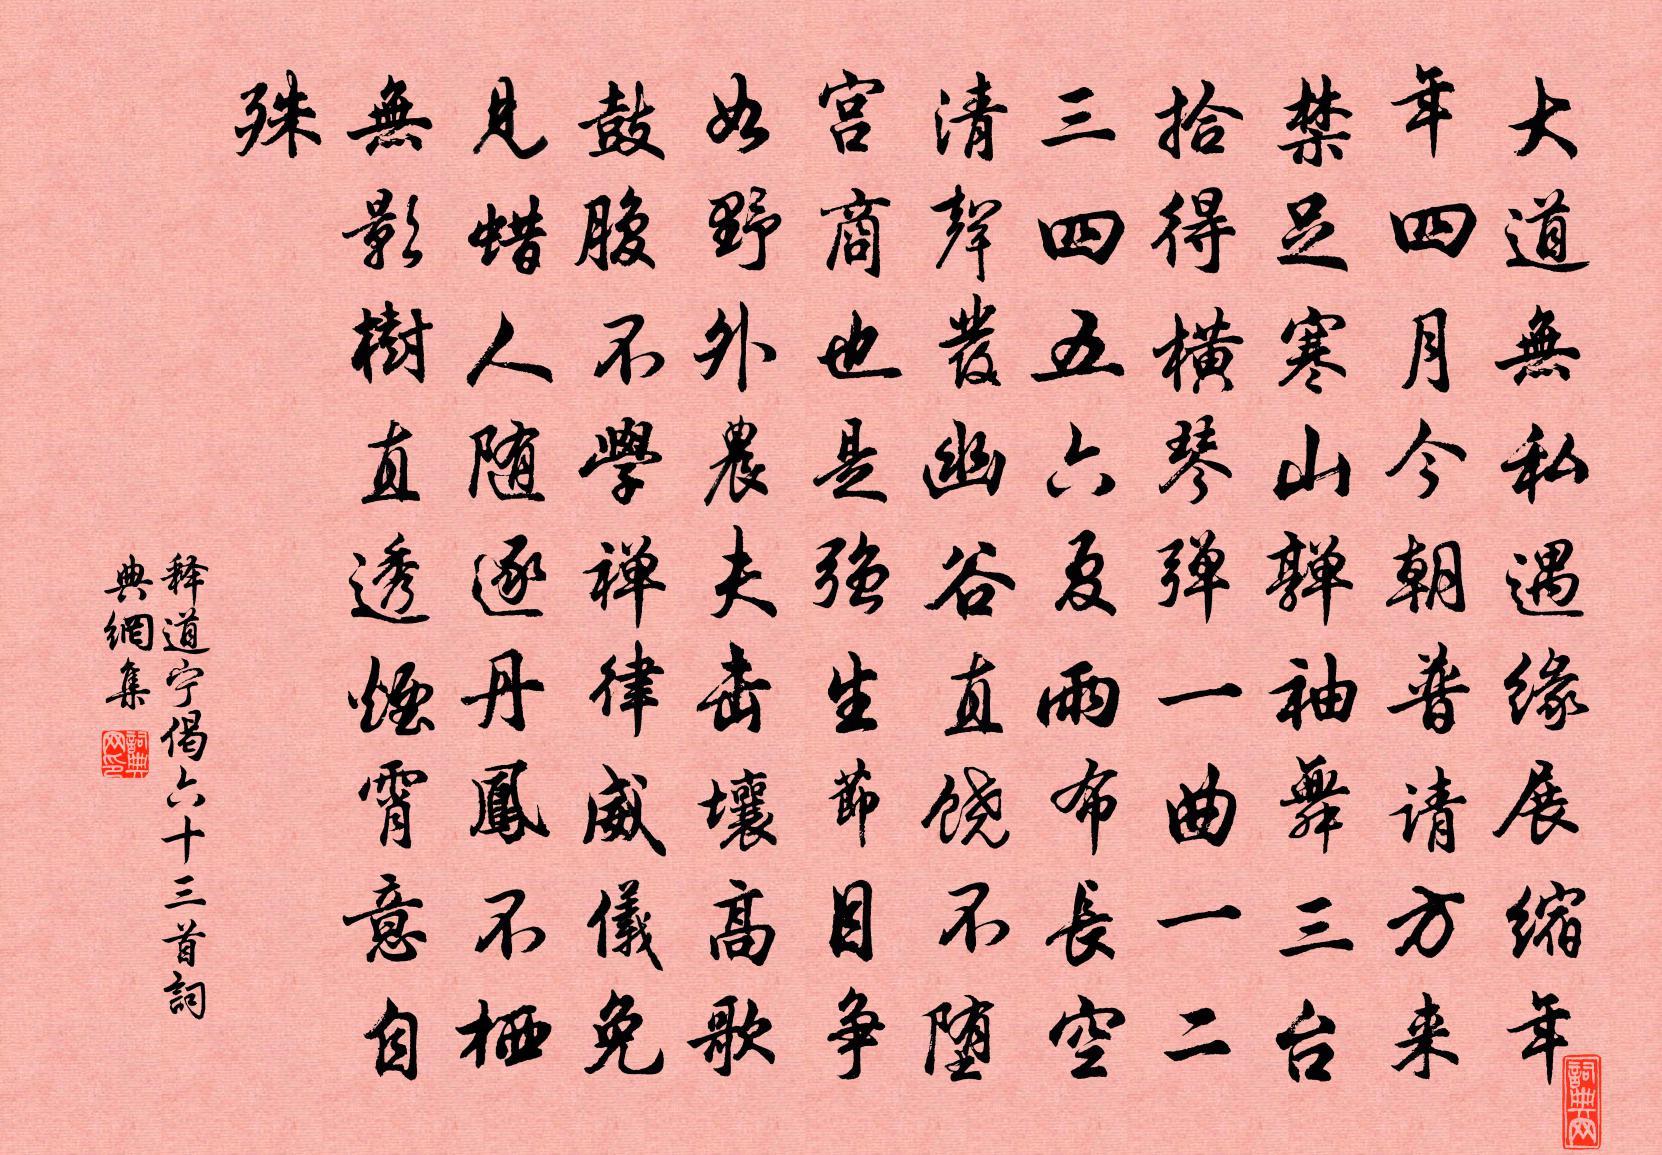 大道無私遇缘展缩年
年四月今朝普请方来
禁足寒山嚲袖舞三台
拾得横琴弹一曲一二
三四五六夏雨布長空
清聲發幽谷直饶不堕
宫商也是强生節目争
如野外農夫击壤高歌
鼓腹不學禅律威儀免
見蜡人随逐丹鳳不栖
無影樹直透煙霄意自
殊
释道宁偈六十三首詞
典網集
詞典网印
詞典网